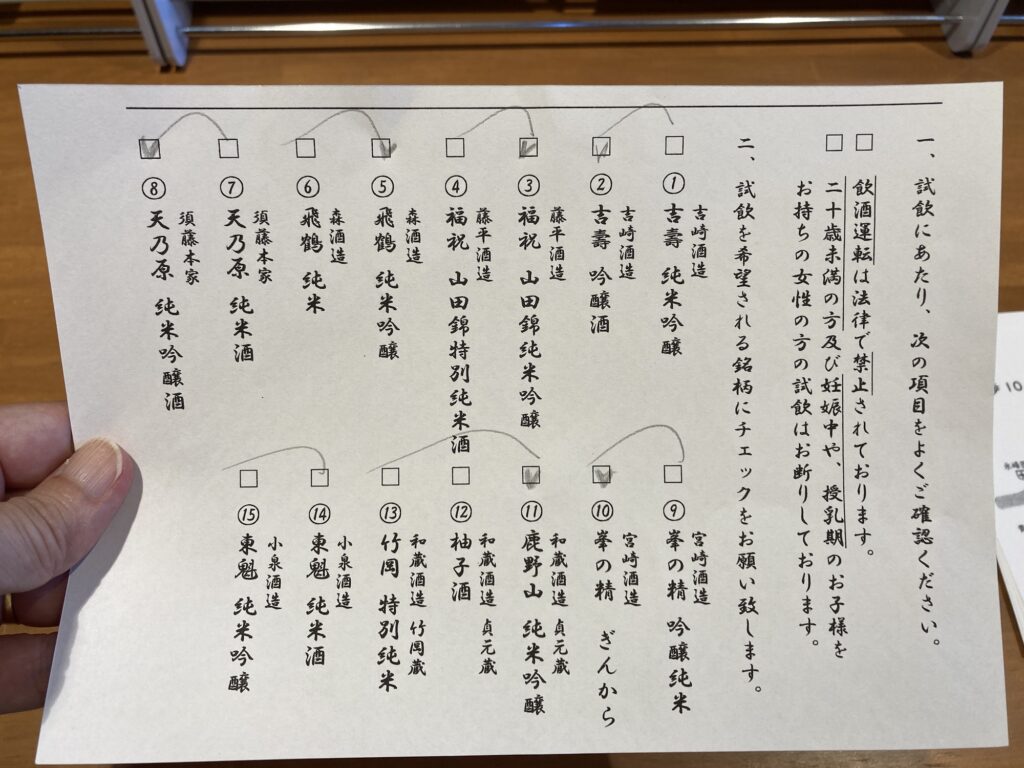 一、試飲にあたり、次の項目をよくご確認ください。
□ 飲酒運転は法律で禁止されております。
□ 二十歳未満の方及び妊娠中や、授乳期のお子様を
お持ちの女性の方の試飲はお断りしております。
二、試飲を希望される銘柄にチェックをお願い致します。
吉崎酒造
□ ① 吉壽 純米吟醸
吉崎酒造
☑ ② 吉壽 吟醸酒
藤平酒造
☑ ③ 福祝 山田錦純米吟醸
藤平酒造
□ ④ 福祝 山田錦特別純米酒
森酒造
☑ ⑤ 飛鶴 純米吟醸
森酒造
□ ⑥ 飛鶴 純米
須藤本家
□ ⑦ 天乃原 純米酒
須藤本家
☑ ⑧ 天乃原 純米吟醸酒
宮崎酒造
□ ⑨ 峯の精 吟醸純米
宮崎酒造
☑ ⑩ 峯の精 ぎんから
和蔵酒造 貞元蔵
☑ ⑪ 鹿野山 純米吟醸
和蔵酒造 貞元蔵
□ ⑫ 柚子酒
和蔵酒造 竹岡蔵
□ ⑬ 竹岡 特別純米
小泉酒造
□ ⑭ 東魁 純米酒
小泉酒造
□ ⑮ 東魁 純米吟醸